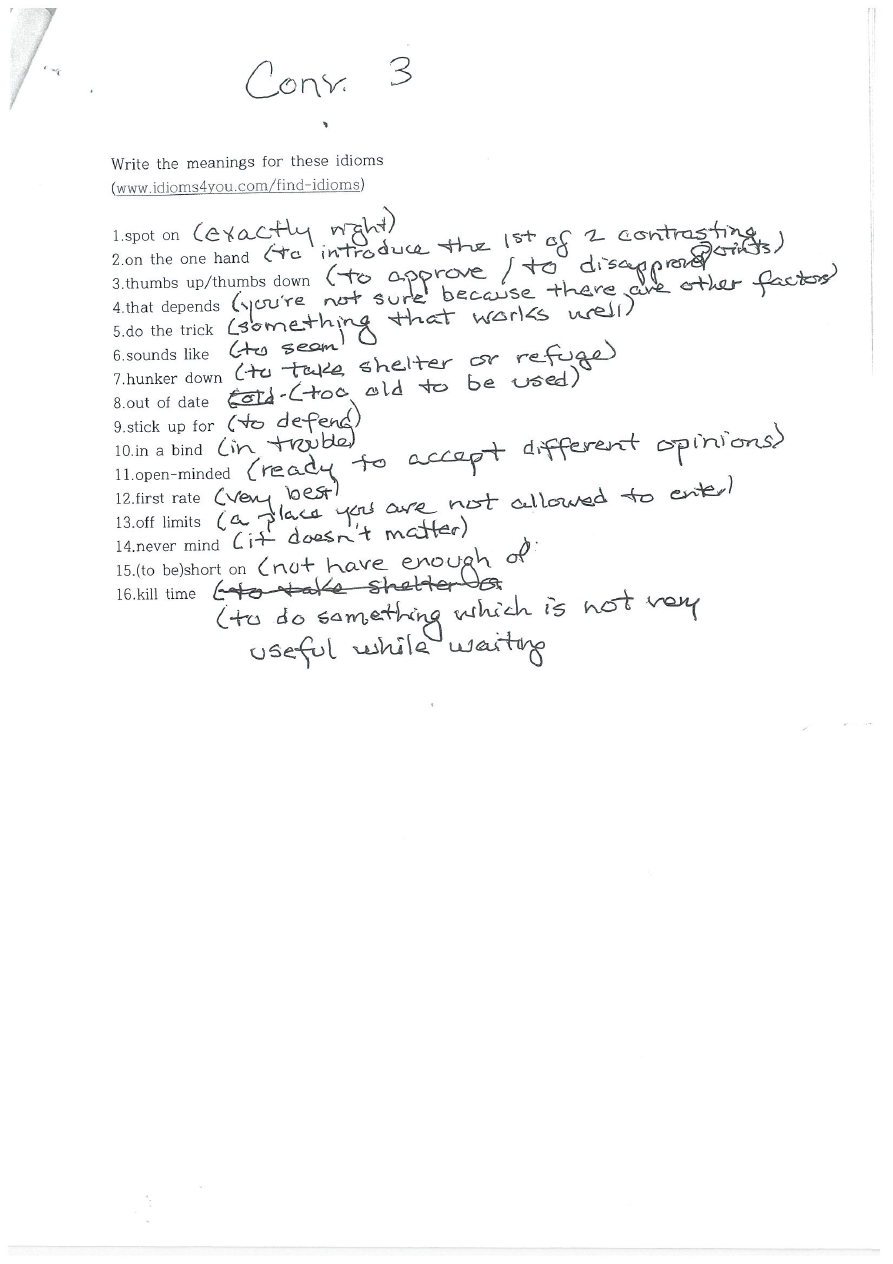 Conv. 3
Write the meanings for these idioms
(www.idioms4you.com/find-idioms)
1.spot on (exactly right)
2.on the one hand (to introduce the 1st of 2 contrasting points)
3.thumbs up/thumbs down (to approve / to disapprove)
4.that depends (you're not sure because there are other factors)
5.do the trick (something that works well)
6.sounds like (to seem)
7.hunker down (to take shelter or refuge)
8.out of date (too old to be used)
9.stick up for (to defend)
10.in a bind (in trouble)
11.open-minded (ready to accept different opinions)
12.first rate (very best)
13.off limits (a place you are not allowed to enter)
14.never mind (it doesn't matter)
15.(to be)short on (not have enough of
16.kill time (to take shelter or
(to do something which is not very
useful while waiting